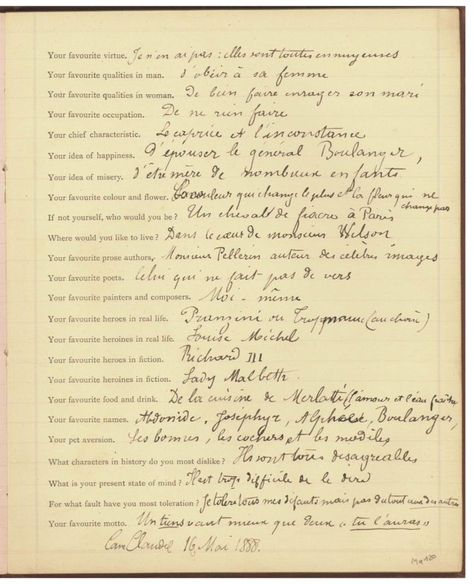 Your favourite virtue. Je n'en ai pas : elles sont toutes ennuyeuses
Your favourite qualities in man. d'obéir à sa femme
Your favourite qualities in woman. De bien faire enrager son mari
Your favourite occupation. De ne rien faire
Your chief characteristic. Le caprice et l'inconstance
Your idea of happiness. D'épouser le général Boulanger,
Your idea of misery. d'être mère de nombreux enfants
Your favourite colour and flower. La couleur qui change le plus et la fleur qui ne
change pas
If not yourself, who would you be? Un cheval de fiacre à Paris
Where would you like to live? Dans le cœur de monsieur Wilson
Your favourite prose authors. Monsieur Pellerin auteur des célèbres images
Your favourite poets. Celui qui ne fait pas de vers
Your favourite painters and composers. Moi-même
Your favourite heroes in real life. Pranzini ou Tropmann (au choix)
Your favourite heroines in real life. Louise Michel
Your favourite heroes in fiction. Richard III
Your favourite heroines in fiction. Lady Macbeth.
Your favourite food and drink. De la cuisine de Merlatti (l'amour et l'eau fraîche
Your favourite names. Abdonide, Josephyr, Alphée, Boulanger,
Your pet aversion. Les bonnes, les cochers et les modèles
What characters in history do you most dislike? Ils sont tous désagréables
What is your present state of mind? Il est trop difficile de le dire
For what fault have you most toleration? Je tolère tous mes défauts mais pas du tout ceux des autres
Your favourite motto. Un tiens vaut mieux que deux « tu l'auras »
Cam Claudel 16 Mai 1888.